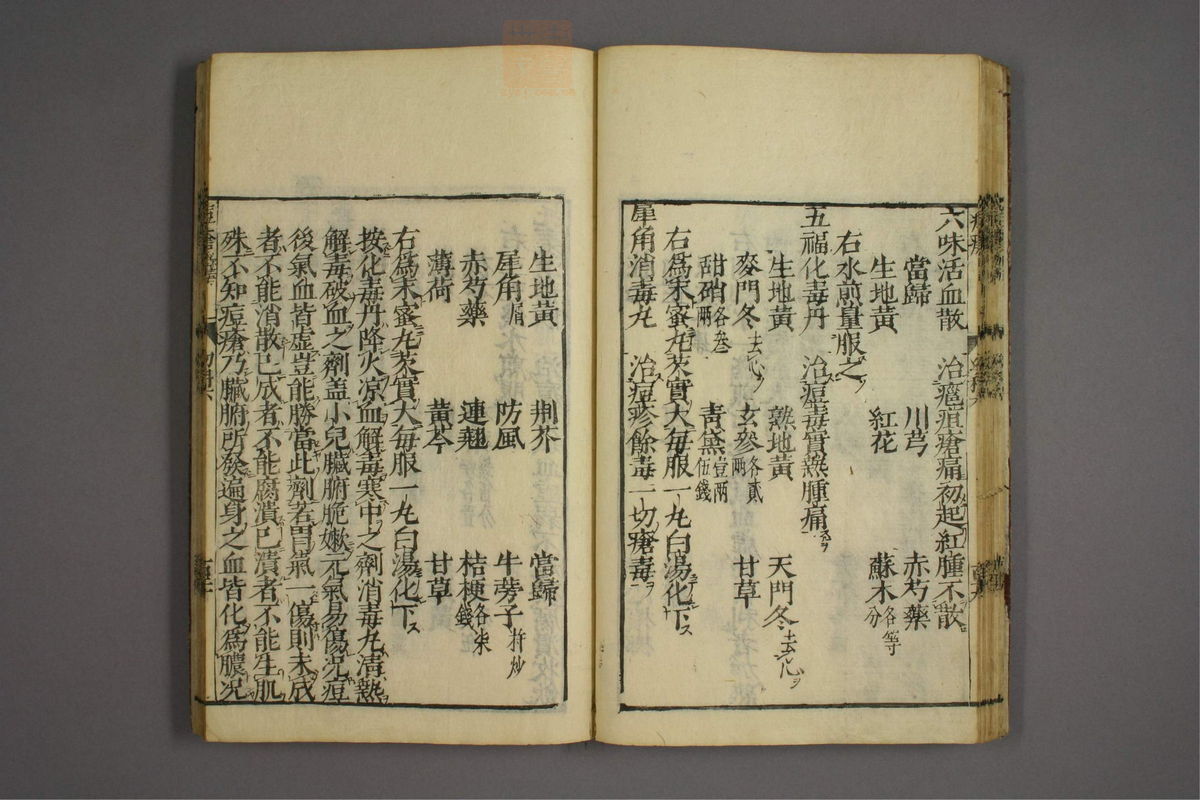 六味活血散　治癰疽瘡痛初起紅腫不散
當歸　川芎　赤芍藥
生地黃　紅花　蘇木各等分
右水煎量服之
五福化毒丹　治痘毒實熱腫痛
生地黃　熟地黃　天門冬去心
麥門冬去心　玄參各貳兩　甘草
甜硝各叁兩　青黛壹兩伍錢
右為末蜜丸芡實大每服一丸白湯化下
犀角消毒丸　治痘疹餘毒一切瘡毒
生地黃　荆芥　當歸
犀角屑　防風　牛蒡子杵炒
赤芍藥　連翹　桔梗各柒錢
薄荷　黃芩　甘草
右為末蜜丸芡實大每服一丸白湯化下
按化毒丹降火凉血解毒寒中之劑消毒丸清熱
解毒破血之劑盖小兒臟腑脆嫰元氣易傷况痘
後氣血皆虚豈能勝當此劑若胃氣一傷則未成
者不能消散已成者不能腐潰已潰者不能生肌
殊不知痘瘡乃臟腑所發遍身之血皆化為膿况